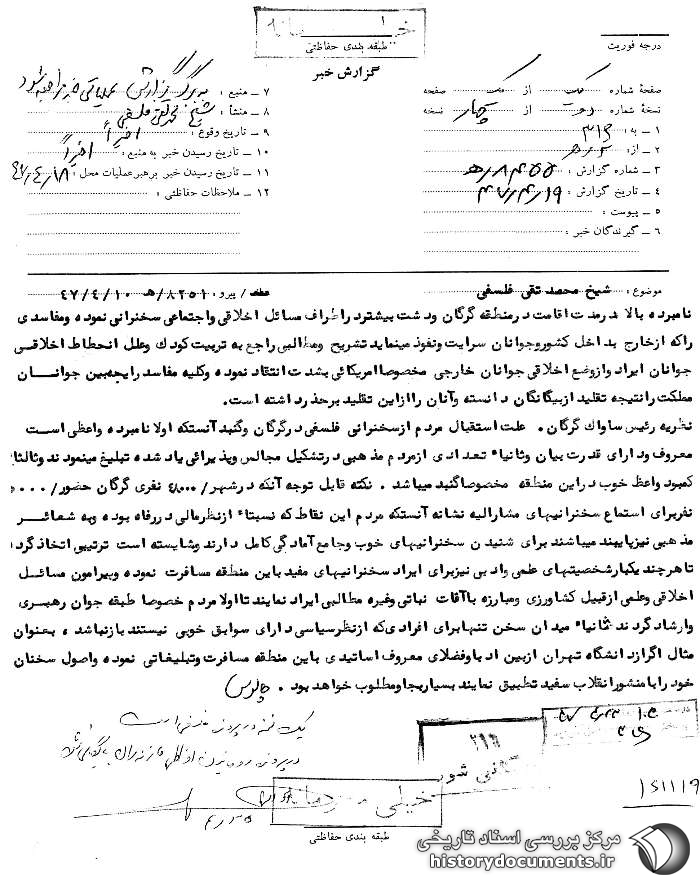 خیلی محرمانه
طبقه بندی حفاظتی
درجه فوریت
گزارش خبر
صفحهٔ شماره یک از یک صفحه
نسخهٔ شماره از چهار نسخه
۱ - به : ۳۱۶
۲ - از : ۲/ه
۳ - شماره گزارش : ۸۴۵۵/ه
۴ - تاریخ گزارش : ۴۷/۴/۱۹
۵ - پیوست :
۶ - گیرندگان خبر :
۷ - منبع : به برگ گزارش عملیاتی خبر مراجعه شود
۸ - منشأ : شیخ محمد تقی فلسفی
۹ - تاریخ وقوع : اخیراً
۱۰ - تاریخ رسیدن خبر به منبع : اخیراً
۱۱ - تاریخ رسیدن خبر برهبر عملیات محل : ۴۷/۴/۱۸
۱۲ - ملاحظات حفاظتی :
موضوع : شیخ محمد تقی فلسفی عطف / پیرو : ۸۲۵۱/ه - ۴۷/۴/۱۰
نامبرده بالا در مدت اقامت در منطقه گرگان و دشت بیشتر در اطراف مسائل اخلاقی و اجتماعی سخنرانی نموده و مفاسدی
را که از خارج بداخل کشور و جوانان سرایت و نفوذ مینماید تشریح و مطالبی راجع به تربیت کودک و علل انحطاط اخلاقی
جوانان ایراد و از وضع اخلاقی جوانان خارجی مخصوصا امریکائی بشدت انتقاد نموده و کلیه مفاسد رایجه بین جوانان
مملکت را نتیجه تقلید از بیگانگان دانسته و آنان را از این تقلید برحذر داشته است.
نظریه رئیس ساواک گرگان . علت استقبال مردم از سخنرانی فلسفی در گرگان و گنبد آنستکه اولا نامبرده واعظی است
معروف و دارای قدرت بیان و ثانیاً تعدادی از مردم مذهبی در تشکیل مجالس و پذیرائی یاد شده تبلیغ مینمودند و ثالثا
کمبود واعظ خوب در این منطقه مخصوصا گنبد میباشد . نکته قابل توجه آنکه در شهر نفری گرگان حضور
نفر برای استماع سخنرانیهای مشارالیه نشانه آنستکه مردم این نقاط که نسبتاً از نظر مالی در رفاه بوده و به شعائر
مذهبی نیز پایبند میباشند برای شنیدن سخنرانیهای خوب و جامع آمادگی کامل دارند و شایسته است ترتیبی اتخاذ گردد
تا هر چند یکبار شخصیتهای علمی و ادبی نیز برای ایراد سخنرانیهای مفید باین منطقه مسافرت نموده و پیرامون مسائل
اخلاقی و علمی از قبیل کشاورزی و مبارزه با آفات نباتی و غیره مطالبی ایراد نمایند تا اولا مردم خصوصا طبقه جوان رهبری
و ارشاد گردند ثانیاً میدان سخن تنها برای افرادی که از نظر سیاسی دارای سوابق خوبی نیستند باز نباشد ، بعنوان
مثال اگر از دانشگاه تهران از بین ادبا و فضلای معروف اساتیدی باین منطقه مسافرت و تبلیغاتی نموده و اصول سخنان
خود را با منشور انقلاب سفید تطبیق نمایند بسیار بجا و مطلوب خواهد بود . چالوس
یک نسخه در پرونده فلسفی است
در پرونده
بایگانی شود
۳۱۶
بایگانی شود
۱۵۱۱۱۹
۴/۲۵
خیلی محرمانه
طبقه بندی حفاظتی
مرکز بررسی اسناد تاریخی
historydocuments.ir